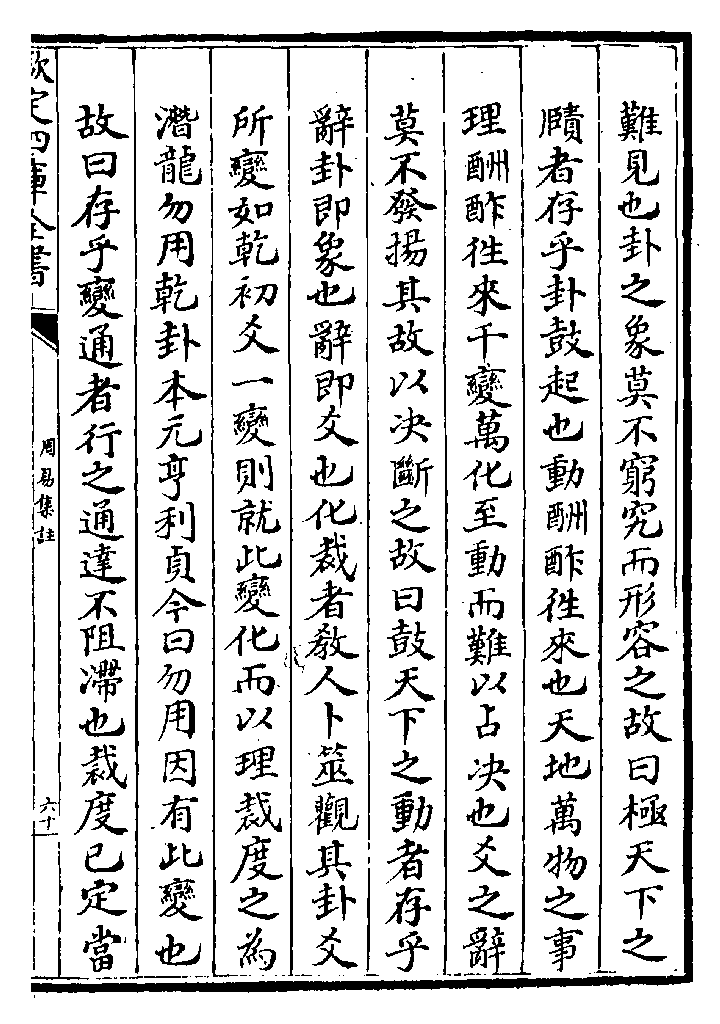 難見也卦之象莫不窮究而形容之故曰極天下之
賾者存乎卦鼓起也動酬酢徃來也天地萬物之事
理酬酢徃來千變萬化至動而難以占决也爻之辭
莫不發揚其故以决斷之故曰鼓天下之動者存乎
辭卦即象也辭即爻也化裁者敎人卜筮觀其卦爻
所變如乾初爻一變則就此變化而以理裁度之為
潛龍勿用乾卦本元亨利貞今曰勿用因有此變也
故曰存乎變通者行之通達不阻滯也裁度已定當
欽定四庫全書
周易集註
六十